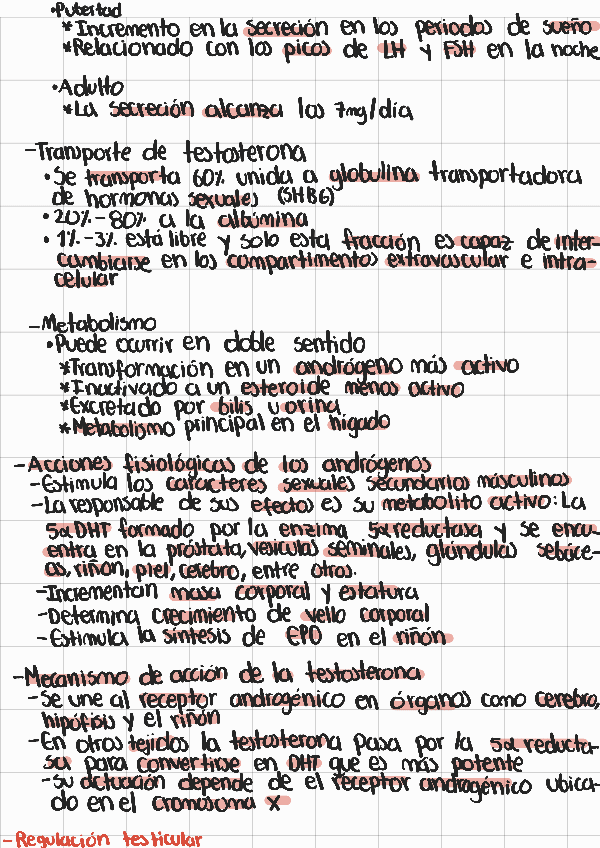 •Pubertad
*Incremento en la secreción en los periodos de sueño
*Relacionado con los picos de LH y FSH en la noche
•Adulto
*La secreción alcanza los 7mg/día
-Transporte de testosterona
•Se transporta 60% unida a globulina transportadora
de hormonas sexuales (SHBG)
•20%-80% a la albúmina
•1%-3% está libre y solo esta fracción es capaz de inter-
cambiarse en los compartimentos extravascular e intra-
celular
-Metabolismo
•Puede ocurrir en doble sentido
*Transformación en un andrógeno más activo
*Inactivado a un esteroide menos activo
*Excretado por bilis u orina
*Metabolismo principal en el hígado
-Acciones fisiológicas de los andrógenos
-Estimula los caracteres sexuales secundarios masculinos
-La responsable de sus efectos es su metabolito activo: La
5αDHT formado por la enzima 5α reductasa y se encu-
entra en la próstata, vesículas seminales, glándulas sebáce-
as, riñon, piel, cerebro, entre otros.
-Incrementan masa corporal y estatura
-Determina crecimiento de vello corporal
-Estimula la síntesis de EPO en el riñón
-Mecanismo de acción de la testosterona
-Se une al receptor androgénico en órganos como cerebro,
hipófisis y el riñón
-En otros tejidos la testosterona pasa por la 5α reducta-
sa para convertirse en DHT que es más potente
-Su actuación depende de el receptor androgénico ubica-
do en el cromosoma X
-Regulación testicular